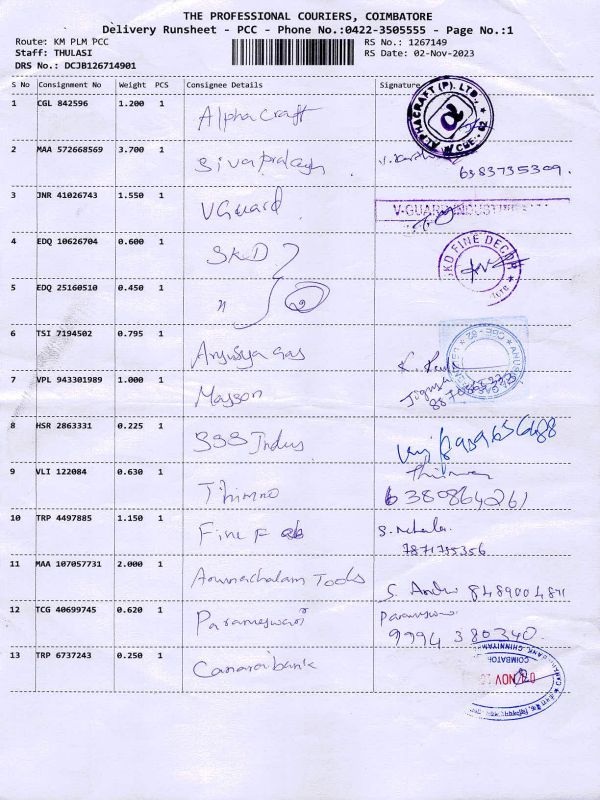 THE PROFESSIONAL COURIERS, COIMBATORE
Delivery Runsheet - PCC - Phone No.:0422-3505555 - Page No.:1
Route: KM PLM PCC RS No.: 1267149
Staff: THULASI RS Date: 02-Nov-2023
DRS No.: DCJB126714901
S No Consignment No Weight PCS Consignee Details Signature
1 CGL 842596 1.200 1 Alphacraft ALPHACRAFT (P). LTD.
2 MAA 572668569 3.700 1 Sivaprakash 6383735309.
3 JNR 41026743 1.550 1 VGuard V-GUARD INDUSTRIES
4 EDQ 10626704 0.600 1 SKD SKD FINE DECOR
5 EDQ 25160510 0.450 1 " 2
6 TSI 7194502 0.795 1 gas
7 VPL 943301989 1.000 1 Mayson
8 HSR 2863331 0.225 1 SSS Indus
9 VLI 122084 0.630 1 6380864261
10 TRP 4497885 1.150 1 Fine Fab S. Mekala.
7871755356
11 MAA 107057731 2.000 1 Arunachalam Tools S. 8489004811
12 TCG 40699745 0.620 1 Parameswari
9994 380340
13 TRP 6737243 0.250 1 Canarabank NOV